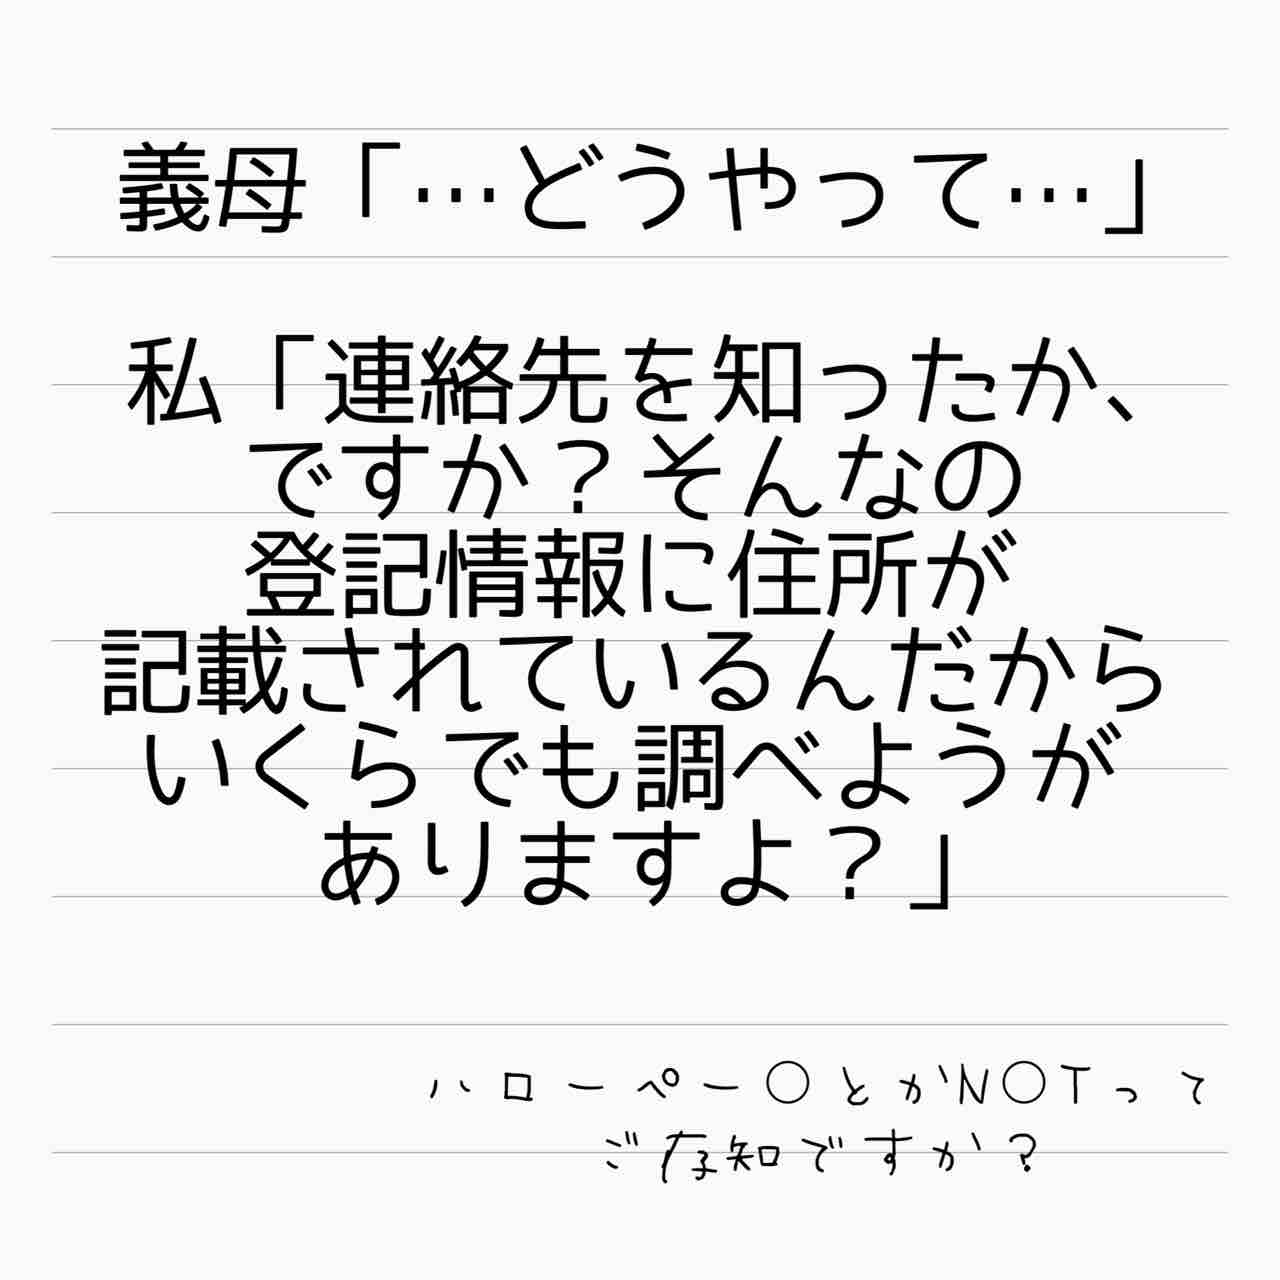 義母「…どうやって…」
私「連絡先を知ったか、
ですか？そんなの
登記情報に住所が
記載されているんだから
いくらでも調べようが
ありますよ？」
ハローペー○とかN○Tって
ご存知ですか？